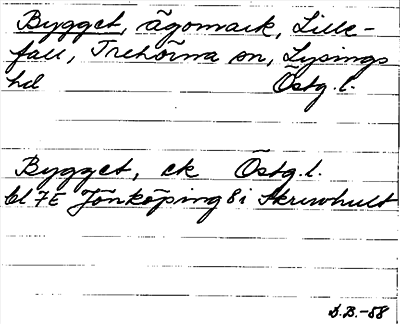 Bygget, ägomark, Lille-
fall, Trehörna sn, Lysings
hd Östg.l.
Bygget, ek Östg.l.
bl 7E Jönköping 8i Skruvhult
S.B.-58